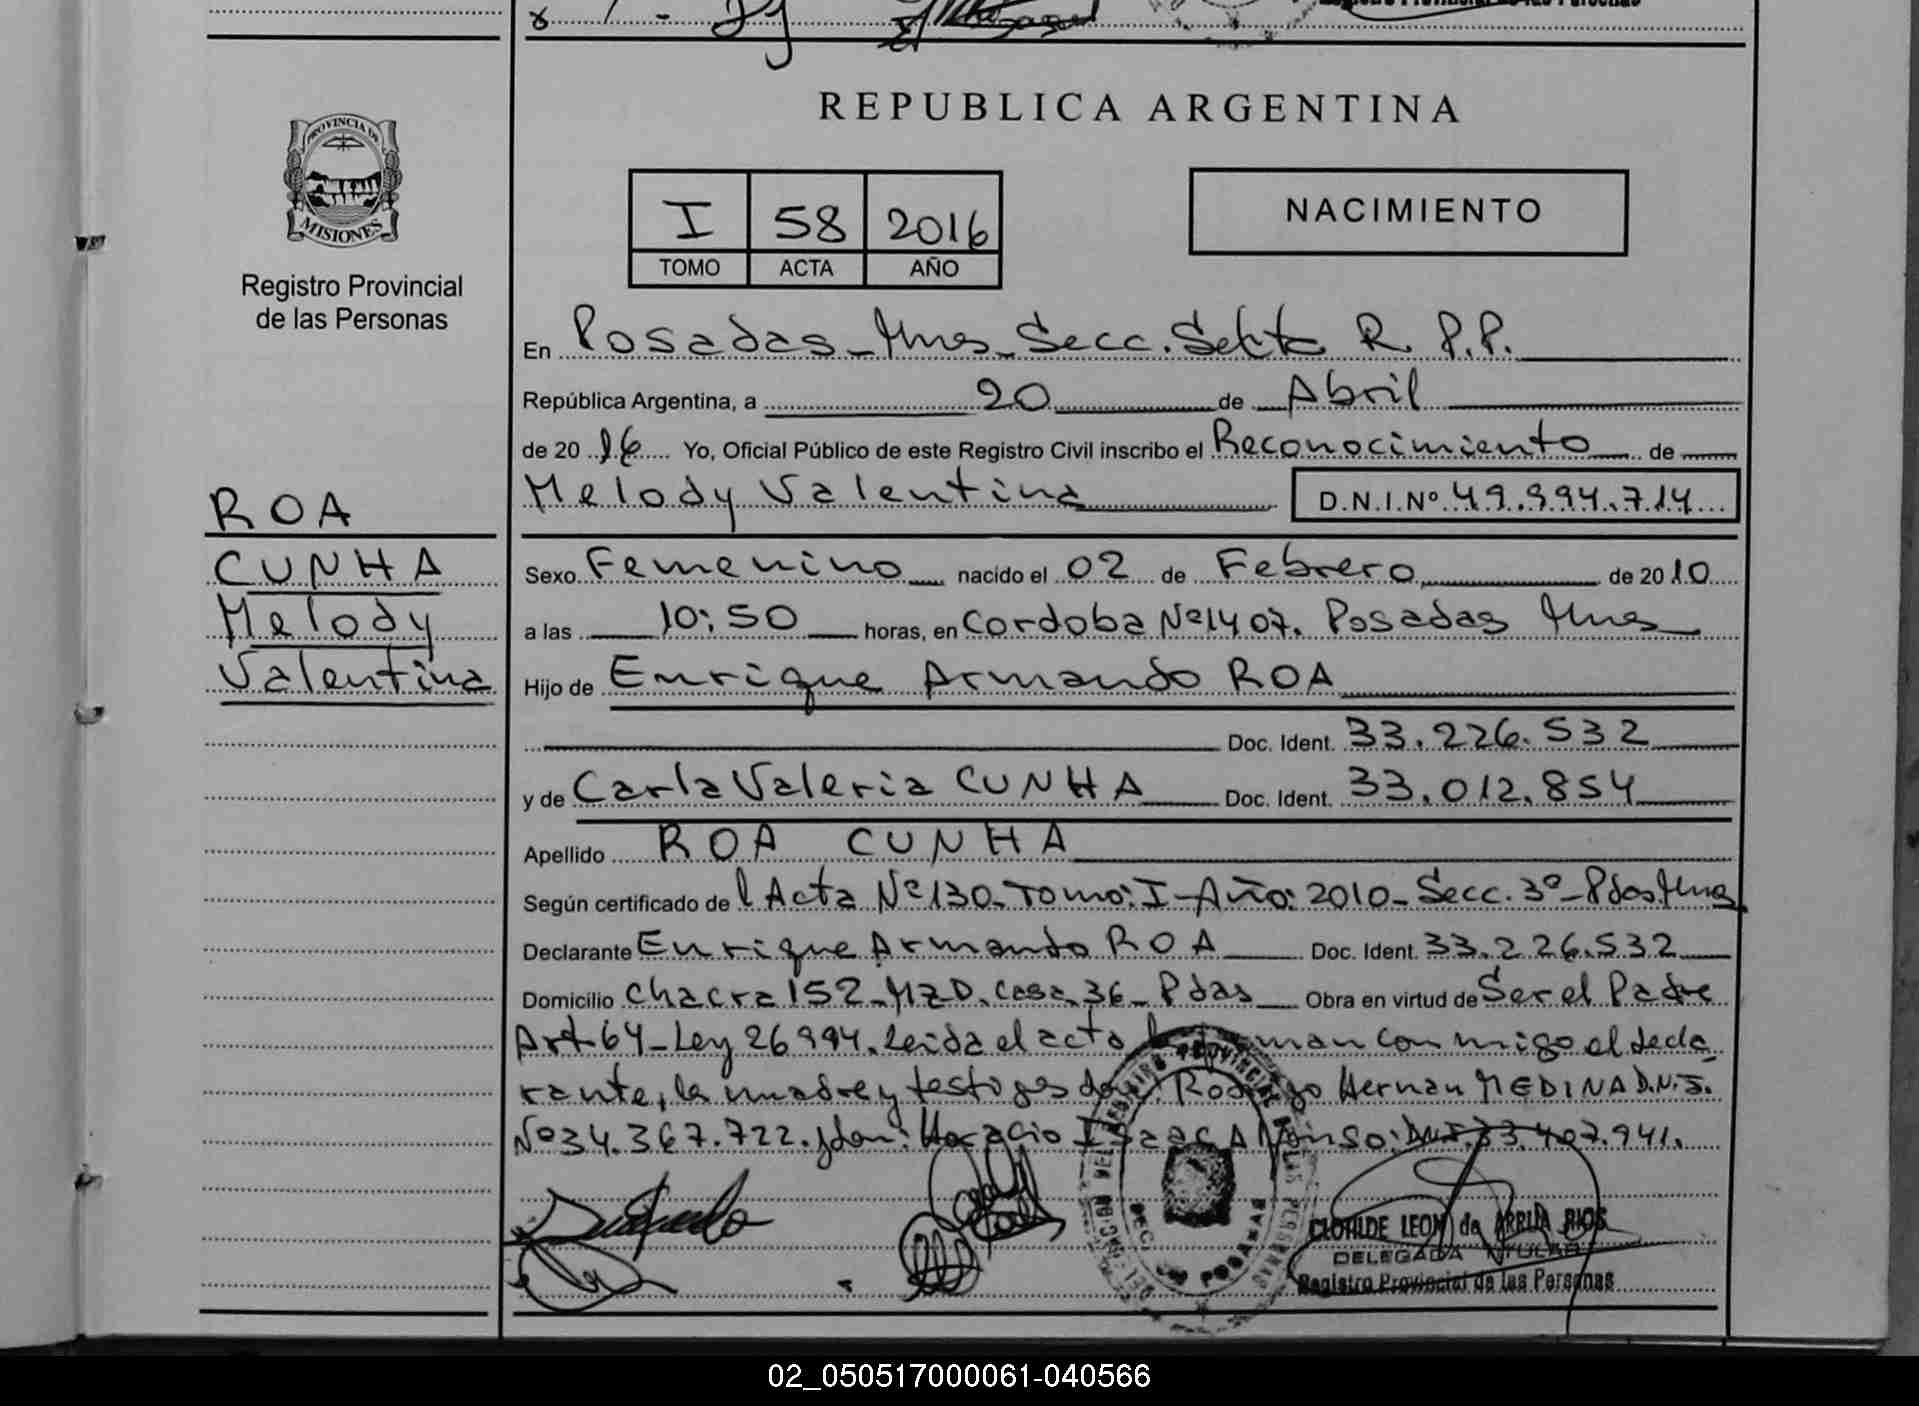 Registro Provincial de las Personas
REPUBLICA ARGENTINA
PROVINCIA DE
MISIONES
Registro Provincial
de las Personas
I 58 2016
TOMO ACTA AÑO
NACIMIENTO
En Posadas - Mnes - Secc. Sexta R. P. P.
República Argentina, a 20 de Abril
de 2016 Yo, Oficial Público de este Registro Civil inscribo el Reconocimiento de
Melody Valentina D.N.I.Nº 49.994.714
ROA
CUNHA
Melody
Valentina
Sexo Femenino nacido el 02 de Febrero de 2010
a las 10:50 horas, en Cordoba Nº1407. Posadas Mnes
Hijo de Enrique Armando ROA
Doc. Ident. 33.226.532
y de Carla Valeria CUNHA Doc. Ident. 33.012.854
Apellido ROA CUNHA
Según certificado del Acta Nº130 - Tomo: I - Año: 2010 - Secc. 3º - Pdas. Mnes
Declarante Enrique Armando ROA Doc. Ident. 33.226.532
Domicilio Chacra 152 - MZ D. Casa 36 - Pdas Obra en virtud de Ser el Padre
Art. 64 - Ley 26994. Leida el acta conmigo el decla-
rante, la madre y testigos Rodrigo Hernan MEDINA D.N.I.
Nº34.367.722. y don: Horacio Isaac Alfonso: DNI. 33.407.941.
CLOTILDE LEON de ARRUA RIOS
DELEGADA TITULAR
Registro Provincial de las Personas
02_050517000061-040566